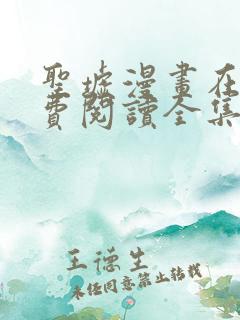 聖墟漫畫在
費閱讀全集
王德生
未經同意禁止轉載